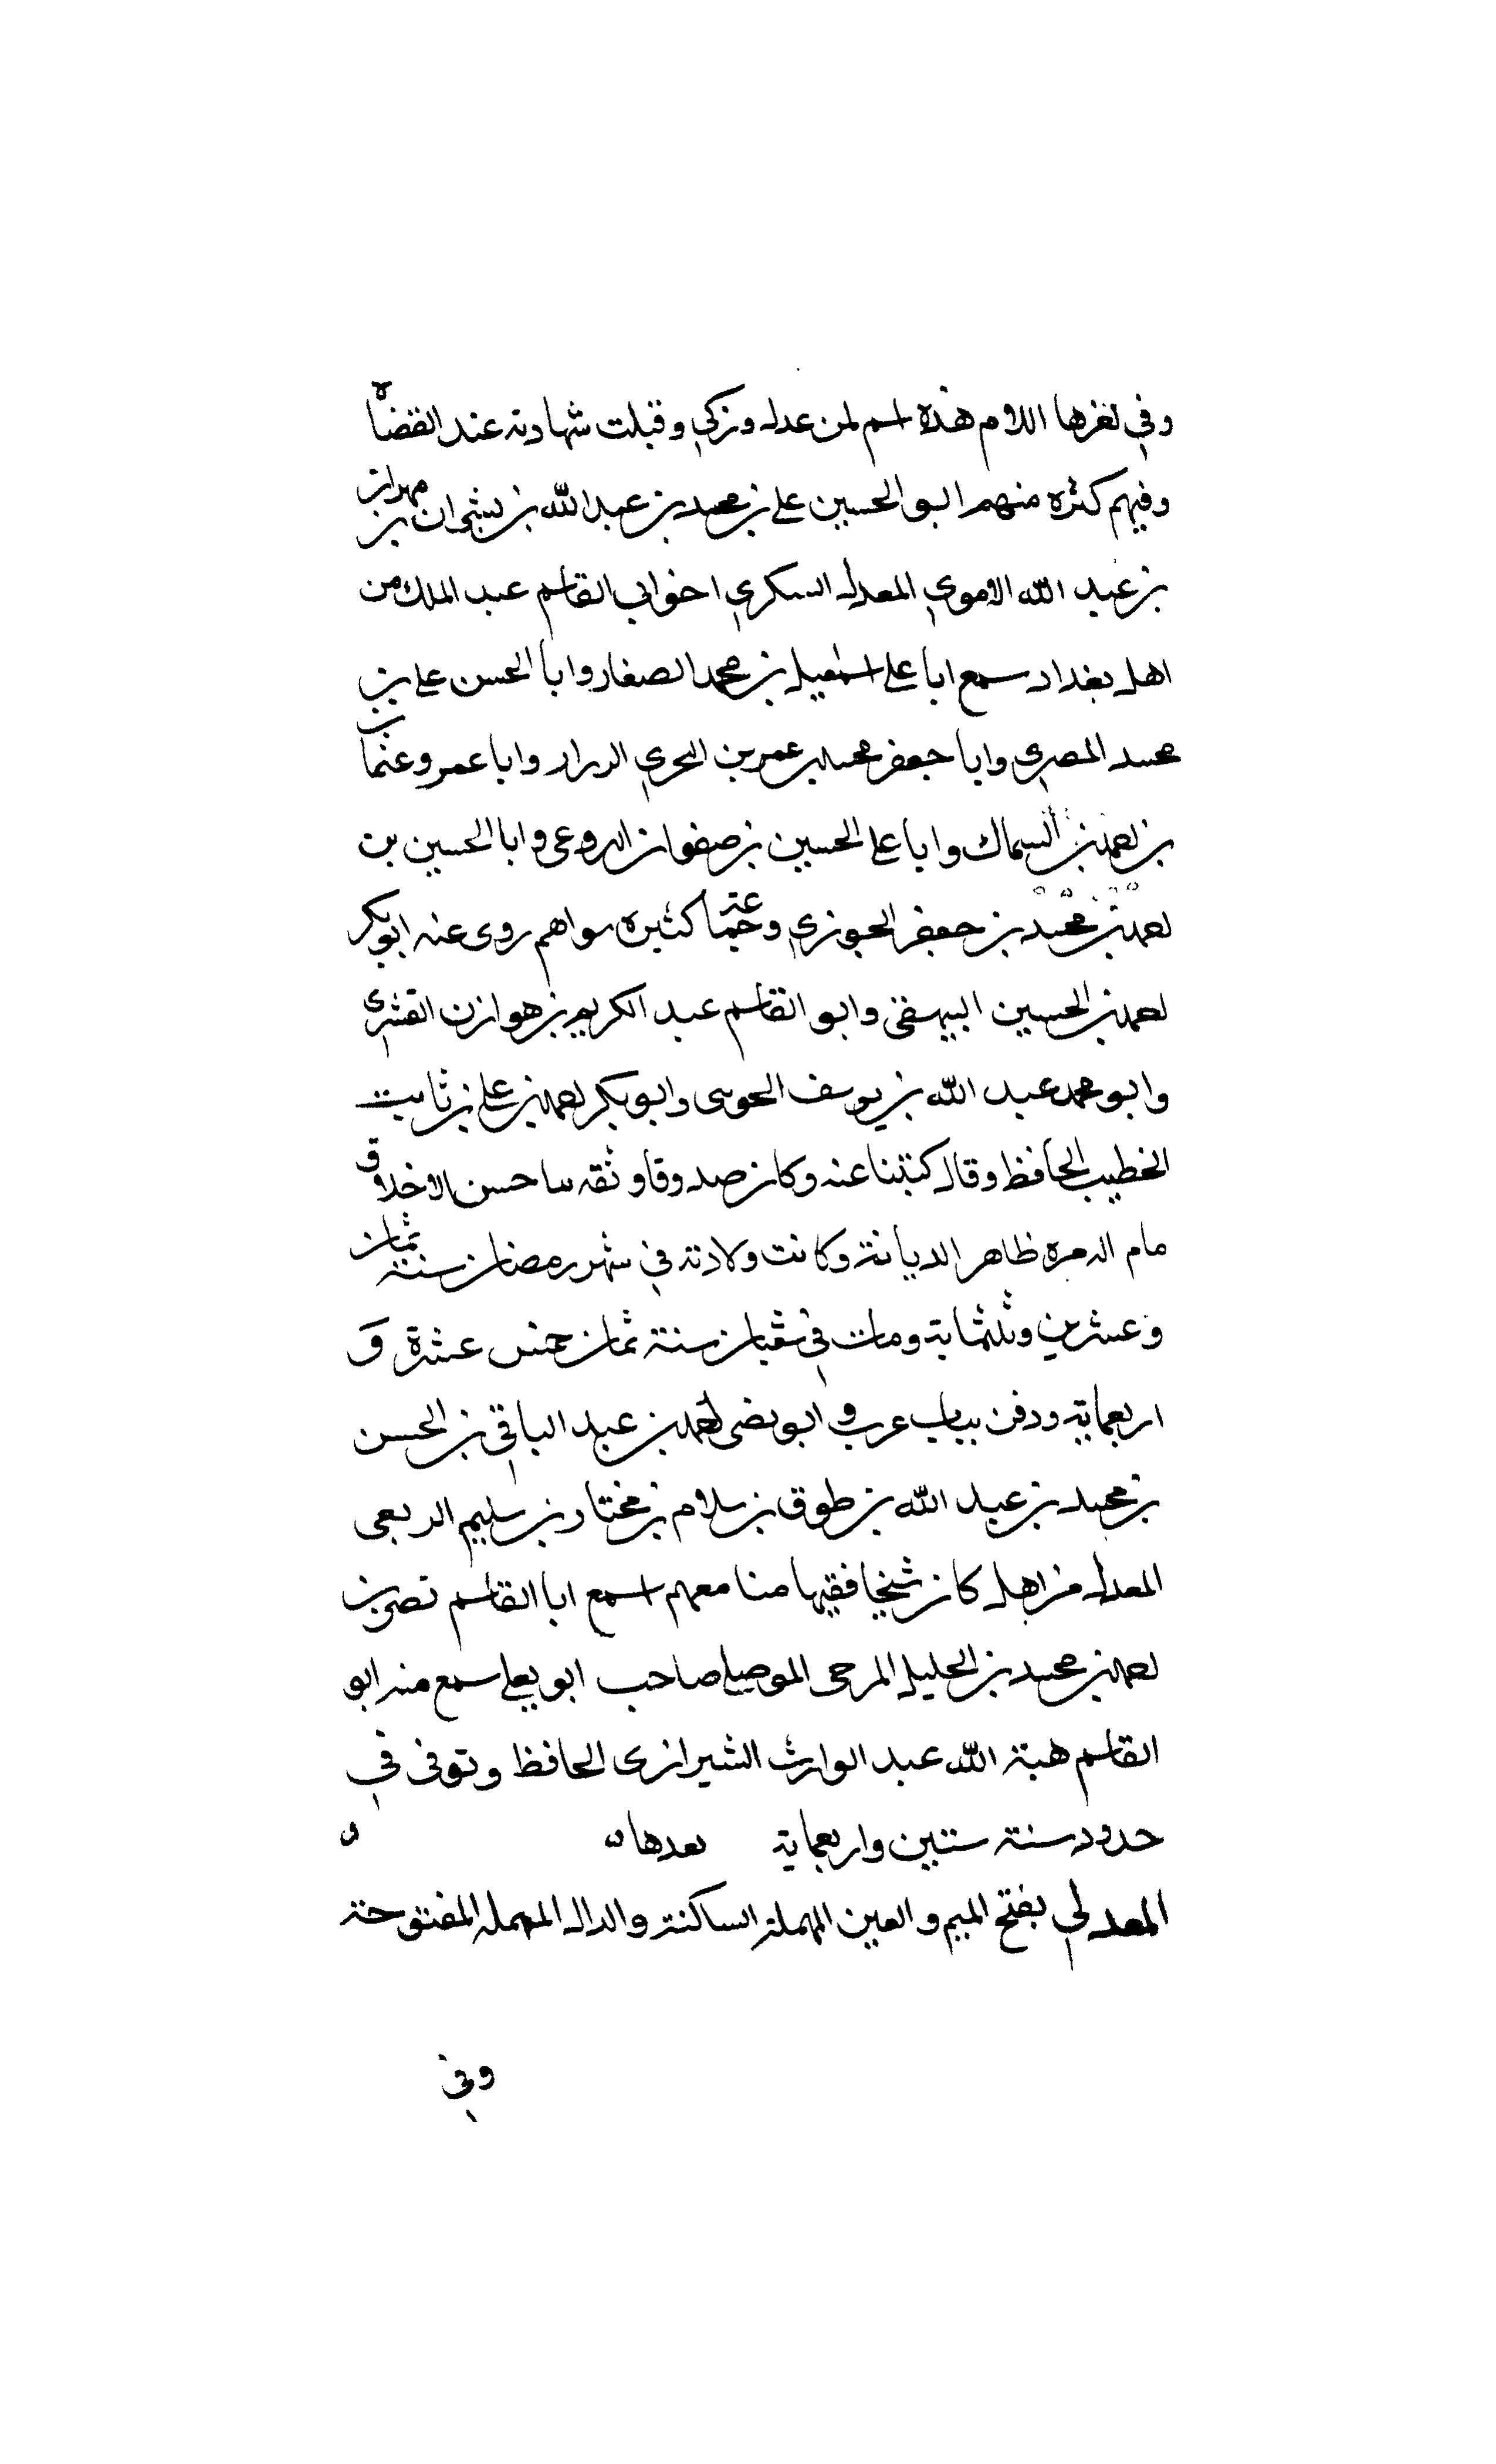 وفي اخرها اللام هذه اسم لمن عدل وزكي وقبلت شهادته عند القضاة
وفيهم كثره منهم ابو الحسين علي بن محمد بن عبد الله بن بشران بن مهران
بن عبد الله الاموي المعدل السكري اخو ابي القاسم عبد الملك من
اهل بغداد سمع ابا علي اسمعيل بن محمد الصفار وابا الحسن علي بن
محمد المصري وابا جعفر محمد بن عمرو بن البحري الرزاز وابا عمرو عثمان
بن احمد بن السماك وابا علي الحسين بن صفوان البردعي وابا الحسين بن
احمد بن محمد بن جعفر الجوزي وجماعة كثيره سواهم روى عنه ابو بكر
احمد بن الحسين البيهقي وابو القاسم عبد الكريم بن هوازن القشيري
وابو محمد عبد الله بن يوسف الجويني وابو بكر احمد بن علي بن ثابت
الخطيب الحافظ وقال كتبنا عنه وكان صدوقا وثقه حسن الاخلاق
تام المروه ظاهر الديانة وكانت ولادته في شهر رمضان سنة ثمان
وعشرين وثلثماية ومات في شعبان سنة ثمان خمس عشرة و
اربعماية ودفن بباب حرب و ابو نصر احمد بن عبد الباقي بن الحسن
بن محمد بن عبد الله بن طوق بن سلام بن مختار بن سليم الربعي
المعدل من اهل كان شيخا فقيها منا معهم اسمع ابا القاسم نصر بن
احمد بن محمد بن الخليل المرجى الموصلي صاحب ابو يعلى سمع منه ابو
القاسم هبة الله عبد الوارث الشيرازي الحافظ وتوفي في
حدود سنة ستين واربعماية بعدها ه ه
المعدلي بفتح الميم والعين المهملة الساكنة والدال المهملة المفتوحة
وفي